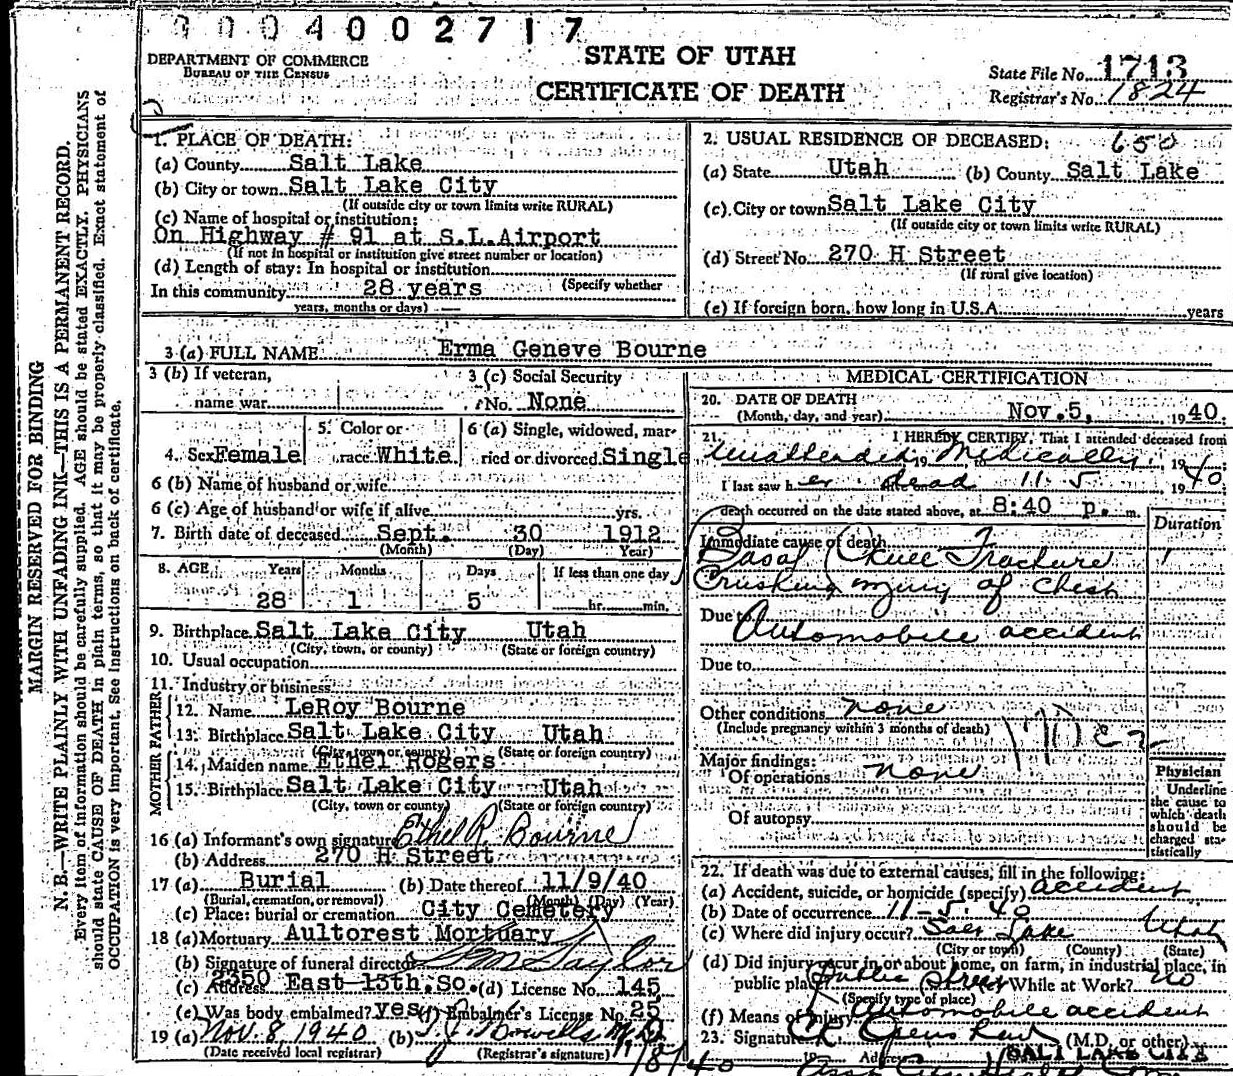 0004002717
DEPARTMENT OF COMMERCE
BUREAU OF THE CENSUS
STATE OF UTAH
CERTIFICATE OF DEATH
State File No. 1713
Registrar's No. 1824
MARGIN RESERVED FOR BINDING
N. B.—WRITE PLAINLY WITH UNFADING INK—THIS IS A PERMANENT RECORD.
Every item of information should be carefully supplied. AGE should be stated EXACTLY. PHYSICIANS
should state CAUSE OF DEATH in plain terms, so that it may be properly classified. Exact statement of
OCCUPATION is very important. See instructions on back of certificate.
1. PLACE OF DEATH:
(a) County Salt Lake
(b) City or town Salt Lake City
(If outside city or town limits write RURAL)
(c) Name of hospital or institution:
On Highway # 91 at S.L.Airport
(If not in hospital or institution give street number or location)
(d) Length of stay: In hospital or institution
In this community 28 years (Specify whether
years, months or days)
2. USUAL RESIDENCE OF DECEASED: 650
(a) State Utah (b) County Salt Lake
(c) City or town Salt Lake City
(If outside city or town limits write RURAL)
(d) Street No. 270 H Street
(If rural give location)
(e) If foreign born, how long in U.S.A. years
3 (a) FULL NAME Erma Geneve Bourne
3 (b) If veteran,
name war
3 (c) Social Security
No. None
4. Sex Female
5. Color or
race White
6 (a) Single, widowed, mar-
ried or divorced Single
6 (b) Name of husband or wife
6 (c) Age of husband or wife if alive yrs.
7. Birth date of deceased Sept. 30 1912
(Month) (Day) Year)
8. AGE Years Months Days If less than one day
28 1 5 hr. min.
9. Birthplace Salt Lake City Utah
(City, town, or county) (State or foreign country)
10. Usual occupation
11. Industry or business
FATHER
12. Name LeRoy Bourne
13. Birthplace Salt Lake City Utah
(City, town or county) (State or foreign country)
MOTHER
14. Maiden name Ethel Rogers
15. Birthplace Salt Lake City Utah
(City, town or county) (State or foreign country)
16 (a) Informant's own signature Ethel R. Bourne
(b) Address 270 H Street
17 (a) Burial (b) Date thereof 11/9/40
(Burial, cremation, or removal) (Month) (Day) (Year)
(c) Place: burial or cremation City Cemetery
18 (a) Mortuary Aultorest Mortuary
(b) Signature of funeral director Taylor
(c) Address 2350 East 13th.So. (d) License No. 145
(e) Was body embalmed? yes (f) Embalmer's License No. 25
19 (a) Nov. 8, 1940 (b)
(Date received local registrar) (Registrar's signature)
11/8/40
MEDICAL CERTIFICATION
20. DATE OF DEATH
(Month, day, and year) Nov.5, 1940.
21. I HEREBY CERTIFY, That I attended deceased from
Unattended 19 Medically, 19
I last saw her dead 11 5 1940
death occurred on the date stated above, at 8:40 p. m.
Duration
Immediate cause of death
Basal Skull Fracture
Crushing injury of Chest
Due to Automobile accident
Due to
Other conditions none
(Include pregnancy within 3 months of death)
Major findings:
Of operations none
Of autopsy
Physician
Underline
the cause to
which death
should be
charged sta-
tistically
22. If death was due to external causes, fill in the following:
(a) Accident, suicide, or homicide (specify) accident
(b) Date of occurrence 11-5-40
(c) Where did injury occur? Salt Lake Utah
(City or town) (County) (State)
(d) Did injury occur in or about home, on farm, in industrial place, in
public place? Public Street While at Work? No
(Specify type of place)
(f) Means of injury Automobile accident
23. Signature (M.D. or other)
Address SALT LAKE CITY